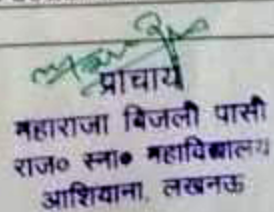 प्राचार्य
महाराजा बिजली पासी
राज० स्ना० महाविद्यालय
आशियाना, लखनऊ